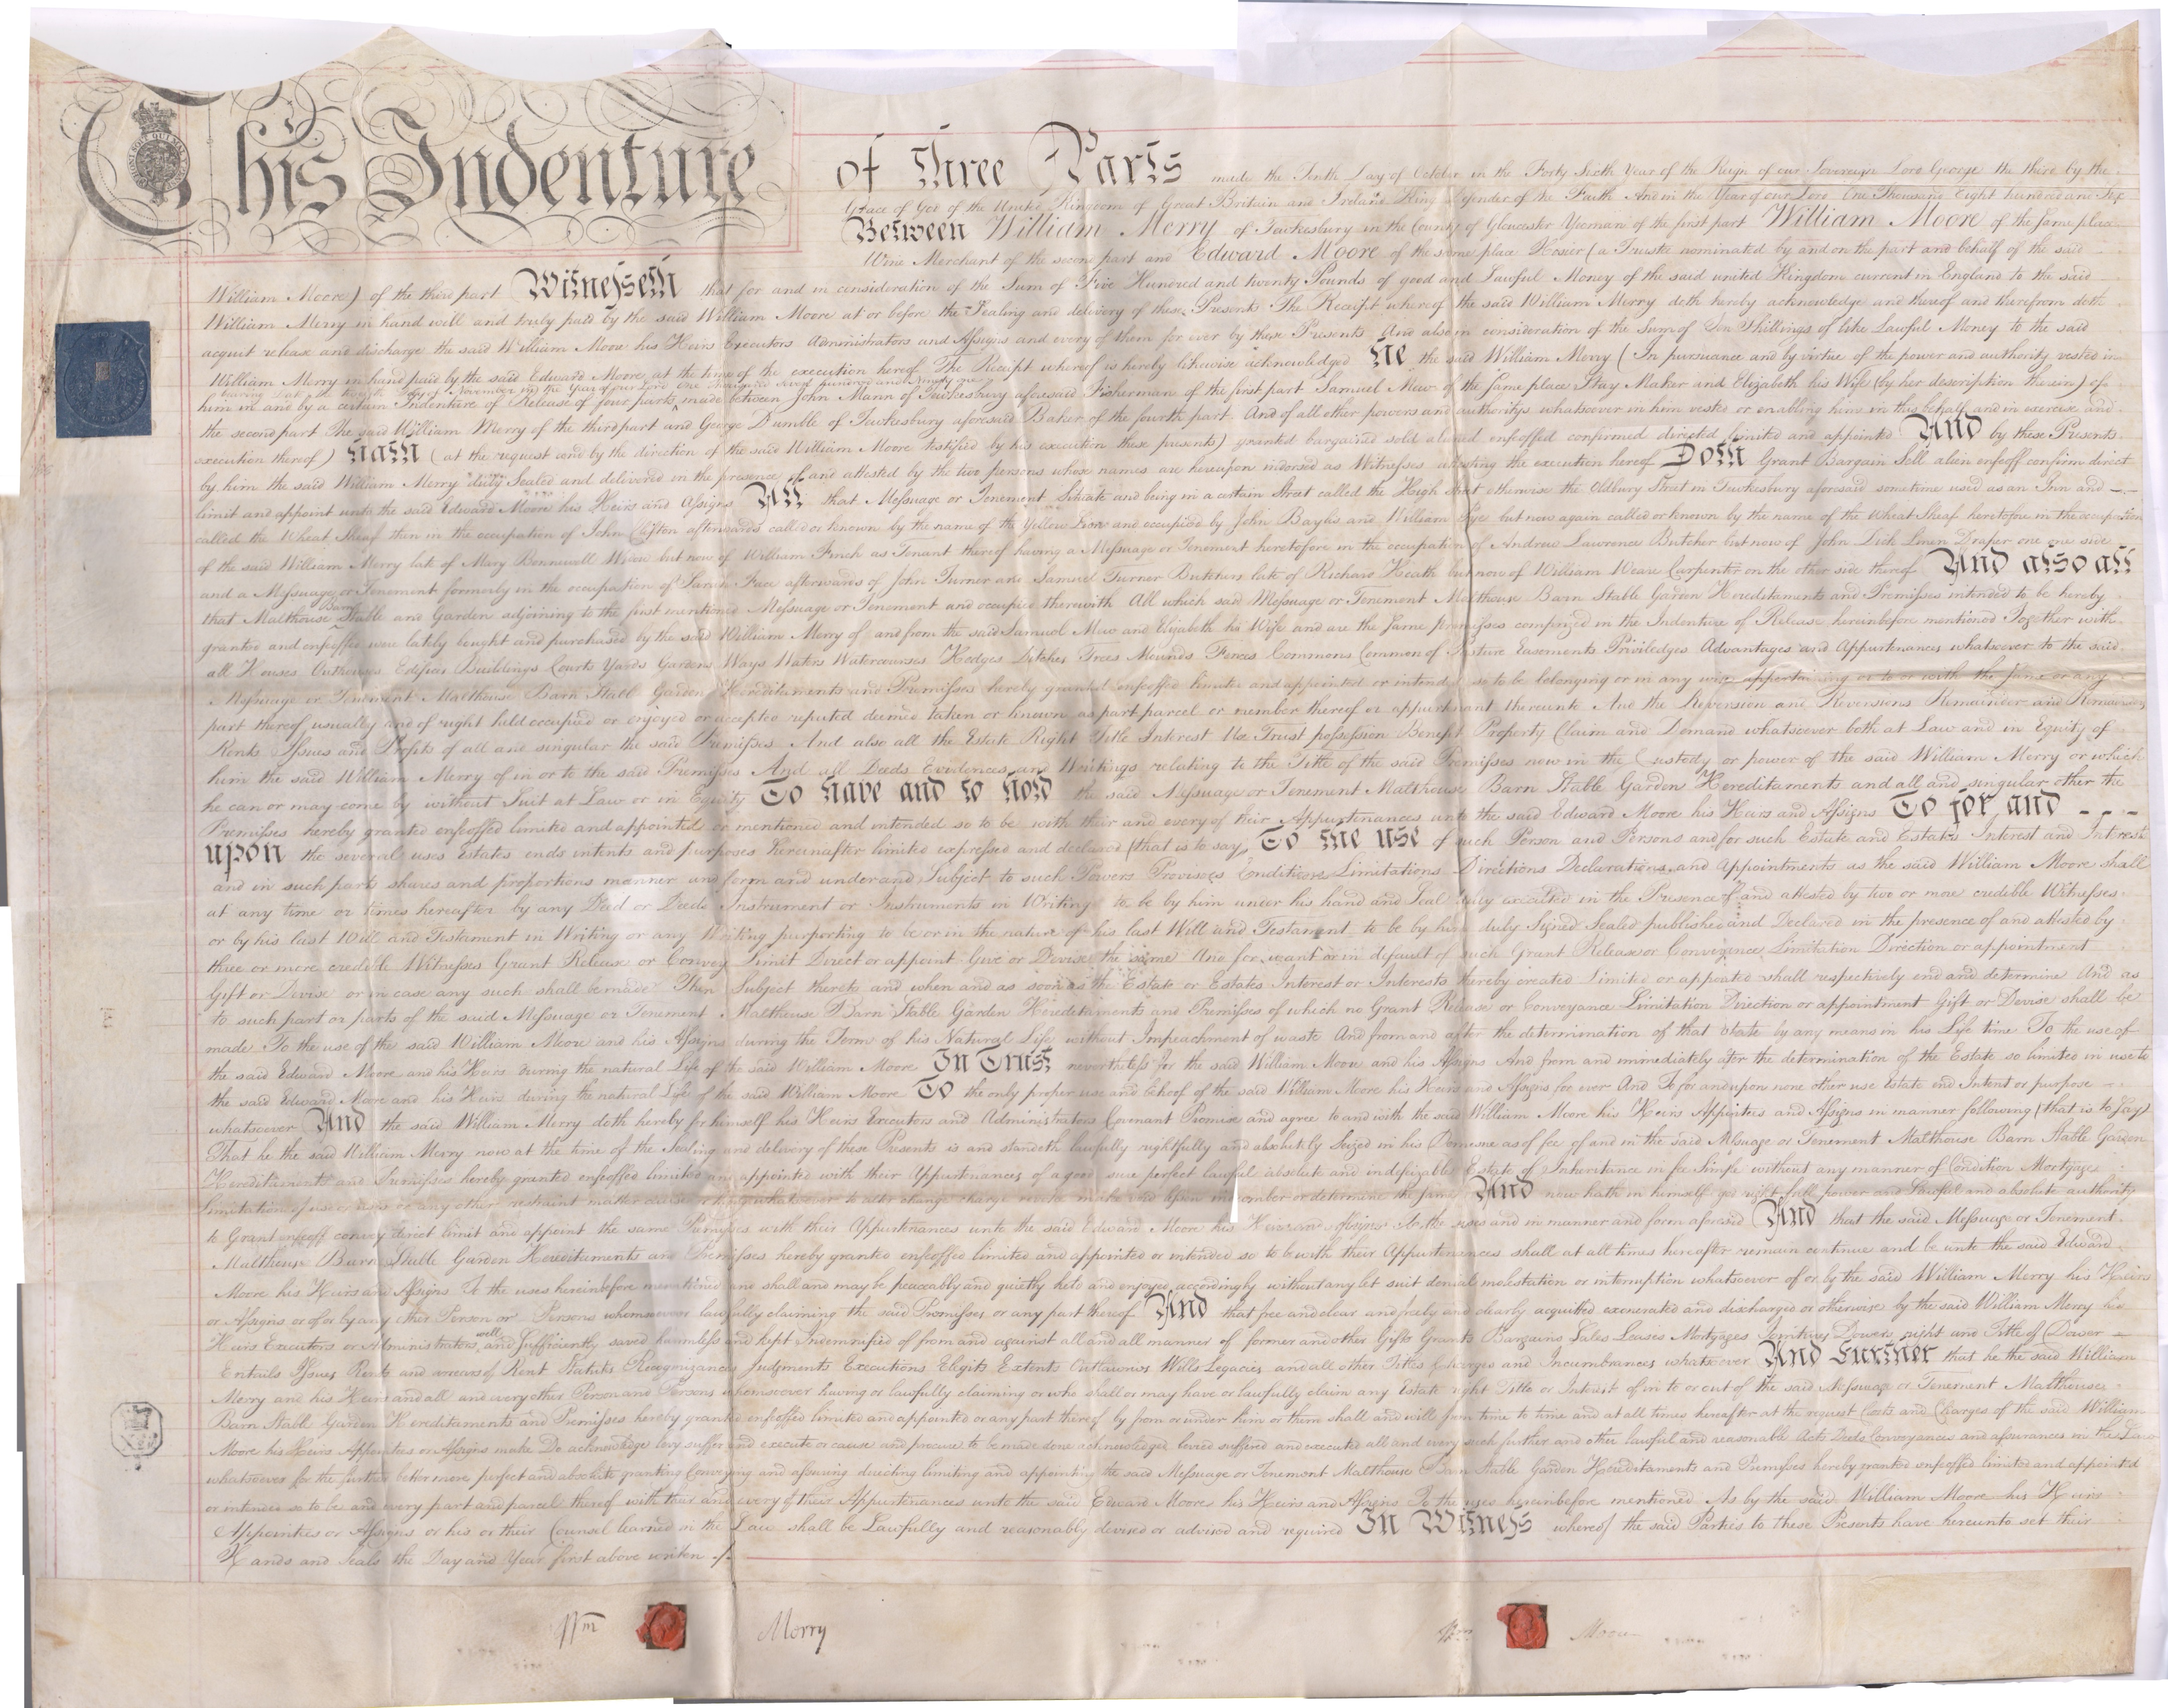 This Indenture of three Parts made the Tenth Day of October in the Forty Sixth Year of the Reign of our Sovereign Lord George the third by the
Grace of God of the United Kingdom of Great Britain and Ireland King Defender of the Faith And in the Year of our Lord One Thousand Eight hundred and Six
Between William Merry of Tewkesbury in the County of Gloucester Yeoman of the first part William Moore of the same place
Wine Merchant of the second part and Edward Moore of the same place Hosier (a Trustee nominated by and on the part and behalf of the said
William Moore) of the third part Witnesseth that for and in consideration of the Sum of Five Hundred and twenty Pounds of good and Lawful Money of the said united Kingdom current in England to the said
William Merry in hand well and truly paid by the said William Moore at or before the Sealing and delivery of these Presents The Receipt whereof the said William Merry doth hereby acknowledge and thereof and therefrom doth
acquit release and discharge the said William Moore his Heirs Executors Administrators and Assigns and every of them for ever by these Presents And also in consideration of the Sum of Ten Shillings of like Lawful Money to the said
William Merry in hand paid by the said Edward Moore at the time of the execution hereof The Receipt whereof is hereby likewise acknowledged He the said William Merry (In pursuance and by virtue of the power and authority vested in
bearing Date the Day of November in the Year of our Lord One Thousand seven hundred and Ninety one
him in and by a certain Indenture of Release of four parts made between John Mann of Tewkesbury aforesaid Fisherman of the first part Samuel Mew of the same place Stay Maker and Elizabeth his Wife (by her description therein) of
the second part The said William Merry of the third part and George Dumble of Tewkesbury aforesaid Baker of the fourth part And of all other powers and authoritys whatsoever in him vested or enabling him in this behalf and in exercise and
execution thereof) Hath (at the request and by the direction of the said William Moore testified by his execution these presents) granted bargained sold aliened enfeoffed confirmed directed limited and appointed And by these Presents
by him the said William Merry duly Sealed and delivered in the presence of and attested by the two persons whose names are hereupon indorsed as Witnesses attesting the execution hereof Doth Grant Bargain Sell alien enfeoff confirm direct
limit and appoint unto the said Edward Moore his Heirs and Assigns All that Messuage or Tenement Situate and being in a certain Street called the High Street otherwise the Oldbury Street in Tewkesbury aforesaid sometime used as an Inn and
called the Wheat Sheaf then in the occupation of John Clifton afterwards called or known by the name of the Yellow Lion and occupied by John Baylis and William Pye but now again called or known by the name of the Wheat Sheaf heretofore in the occupation
of the said William Merry late of Mary Bonnewell Widow but now of William Finch as Tenant thereof having a Messuage or Tenement heretofore in the occupation of Andrew Lawrence Butcher but now of John Dick Linen Draper one one side
and a Messuage or Tenement formerly in the occupation of Sarah Face afterwards of John Turner and Samuel Turner Butchers late of Richard Heath but now of William Weare Carpenter on the other side thereof And also all
Barn
that Malthouse Stable and Garden adjoining to the first mentioned Messuage or Tenement and occupied therewith All which said Messuage or Tenement Malthouse Barn Stable Garden Hereditaments and Premisses intended to be hereby
granted and enfeoffed were lately bought and purchased by the said William Merry of and from the said Samuel Mew and Elizabeth his Wife and are the same premisses comprized in the Indenture of Release hereinbefore mentioned Together with
all Houses Outhouses Edifices Buildings Courts Yards Gardens Ways Waters Watercourses Hedges Ditches Trees Mounds Fences Commons Common of Pasture Easements Priviledges Advantages and Appurtenances whatsoever to the said
Messuage or Tenement Malthouse Barn Stable Garden Hereditaments and Premisses hereby granted enfeoffed limited and appointed or intended so to be belonging or in any wise appertaining or to or with the same or any
part thereof usually and of right held occupied or enjoyed or accepted reputed deemed taken or known as part parcel or member thereof or appurtenant thereunto And the Reversion and Reversions Remainder and Remainders
Rents Issues and Profits of all and singular the said Premisses And also all the Estate Right Title Interest Use Trust possession Benefit Property Claim and Demand whatsoever both at Law and in Equity of
him the said William Merry of in or to the said Premisses And all Deeds Evidences and Writings relating to the Title of the said Premisses now in the Custody or power of the said William Merry or which
he can or may come by without Suit at Law or in Equity To have and to hold the said Messuage or Tenement Malthouse Barn Stable Garden Hereditaments and all and singular other the
Premisses hereby granted enfeoffed limited and appointed or mentioned and intended so to be with their and every of their Appurtenances unto the said Edward Moore his Heirs and Assigns To for and
upon the several uses Estates ends intents and purposes hereinafter limited expressed and declared (that is to say) To the use of such Person and Persons and for such Estate and Estates Interest and Interests
and in such parts shares and proportions manner and form and under and Subject to such Powers Provisoes Conditions Limitations Directions Declarations and Appointments as the said William Moore shall
at any time or times hereafter by any Deed or Deeds Instrument or Instruments in Writing to be by him under his hand and Seal duly executed in the Presence of and attested by two or more credible Witnesses
or by his last Will and Testament in Writing or any Writing purporting to be or in the nature of his last Will and Testament to be by him duly Signed Sealed published and Declared in the presence of and attested by
three or more credible Witnesses Grant Release or Convey Limit Direct or appoint Give or Devise the same And for want or in default of such Grant Release or Conveyance Limitation Direction or appointment
Gift or Devise or in case any such shall be made Then Subject thereto and when and as soon as the Estate or Estates Interest or Interests thereby created limited or appointed shall respectively end and determine And as
to such part or parts of the said Messuage or Tenement Malthouse Barn Stable Garden Hereditaments and Premisses of which no Grant Release or Conveyance Limitation Direction or appointment Gift or Devise shall be
made To the use of the said William Moore and his Assigns during the Term of his Natural Life without Impeachment of waste And from and after the determination of that Estate by any means in his Life time To the use of
the said Edward Moore and his Heirs during the natural Life of the said William Moore In Trust nevertheless for the said William Moore and his Assigns And from and immediately after the determination of the Estate so limited in use to
the said Edward Moore and his Heirs during the natural Life of the said William Moore To the only proper use and behoof of the said William Moore his Heirs and Assigns for ever And To for and upon none other use Estate end Intent or purpose
whatsoever And the said William Merry doth hereby for himself his Heirs Executors and Administrators Covenant Promise and agree to and with the said William Moore his Heirs Appointees and Assigns in manner following (that is to say)
That he the said William Merry now at the time of the Sealing and delivery of these Presents is and standeth lawfully rightfully and absolutely Seized in his Demesne as of fee of and in the said Messuage or Tenement Malthouse Barn Stable Garden
Hereditaments and Premisses hereby granted enfeoffed limited and appointed with their Appurtenances of a good sure perfect lawful absolute and indefeizable Estate of Inheritance in fee Simple without any manner of Condition Mortgage
limitation of use or uses or any other restraint matter cause or thing whatsoever to alter change charge revoke make void or determine the same And now hath in himself good right full power and Lawful and absolute authority
to Grant enfeoff convey direct limit and appoint the same Premisses with their Appurtenances unto the said Edward Moore his Heirs and Assigns To the uses and in manner and form aforesaid And that the said Messuage or Tenement
Malthouse Barn Stable Garden Hereditaments and Premisses hereby granted enfeoffed limited and appointed or intended so to be with their Appurtenances shall at all times hereafter remain continue and be unto the said Edward
Moore his Heirs and Assigns To the uses hereinbefore mentioned and shall and may be peaceably and quietly held and enjoyed accordingly without any let suit denial molestation or interruption whatsoever of or by the said William Merry his Heirs
or Assigns or of or by any other Person or Persons whomsoever lawfully claiming the said Premisses or any part thereof And that free and clear and freely and clearly acquitted exonerated and discharged or otherwise by the said William Merry his
well
Heirs Executors or Administrators and Sufficiently saved harmless and kept Indemnified of from and against all and all manner of former and other Gifts Grants Bargains Sales Leases Mortgages Jointures Dowers right and Title of Dower
Entails Issues Rents and arrears of Rent Statutes Recognizances Judgments Executions Elegits Extents Outlawries Wills Legacies and all other Titles Charges and Incumbrances whatsoever And further that he the said William
Merry and his Heirs and all and every other Person and Persons whomsoever having or lawfully claiming or who shall or may have or lawfully claim any Estate right Title or Interest of in to or out of the said Messuage or Tenement Malthouse
Barn Stable Garden Hereditaments and Premisses hereby granted enfeoffed limited and appointed or any part thereof by from or under him or them shall and will from time to time and at all times hereafter at the request Costs and Charges of the said William
Moore his Heirs Appointees or Assigns make Do acknowledge levy suffer and execute or cause and procure to be made done acknowledged levied suffered and executed all and every such further and other lawful and reasonable Acts Deeds Conveyances and assurances in the Law
whatsoever for the further better more perfect and absolute granting Conveying and assuring directing limiting and appointing the said Messuage or Tenement Malthouse Barn Stable Garden Hereditaments and Premisses hereby granted enfeoffed limited and appointed
or intended so to be and every part and parcel thereof with their and every of their Appurtenances unto the said Edward Moore his Heirs and Assigns To the uses hereinbefore mentioned As by the said William Moore his Heirs
Appointees or Assigns or his or their Counsel learned in the Law shall be Lawfully and reasonably devised or advised and required In Witness whereof the said Parties to these Presents have hereunto set their
Hands and Seals the Day and Year first above written
Wm Merry
Wm Moore